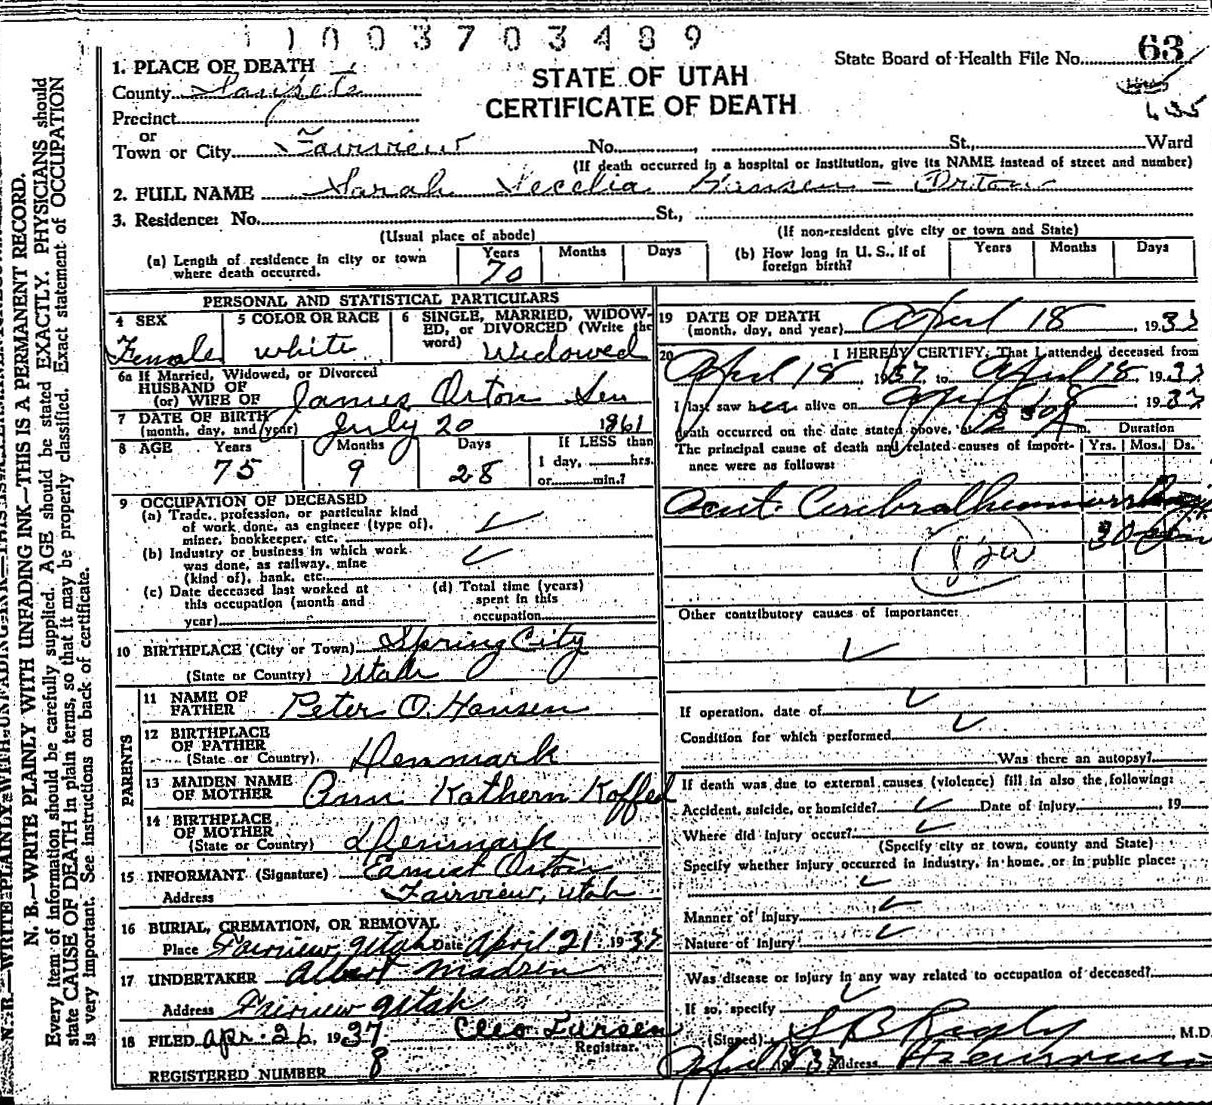 1003703489
State Board of Health File No. 63
635
STATE OF UTAH
CERTIFICATE OF DEATH
1. PLACE OF DEATH
County Sanpete
Precinct
or
Town or City Fairview No. St., Ward
(If death occurred in a hospital or institution, give its NAME instead of street and number)
2. FULL NAME Sarah Hansen - Orton
3. Residence: No. St.,
(Usual place of abode) (If non-resident give city or town and State)
(a) Length of residence in city or town where death occurred. Years 70 Months Days
(b) How long in U. S., if of foreign birth? Years Months Days
PERSONAL AND STATISTICAL PARTICULARS
4 SEX Female
5 COLOR OR RACE white
6 SINGLE, MARRIED, WIDOWED, or DIVORCED (Write the word) Widowed
6a If Married, Widowed, or Divorced
HUSBAND OF
(or) WIFE OF James Orton Sen
7 DATE OF BIRTH
(month, day, and year) July 20 1861
8 AGE Years 75 Months 9 Days 28 If LESS than
1 day, hrs.
or min.?
9 OCCUPATION OF DECEASED
(a) Trade, profession, or particular kind
of work done, as engineer (type of),
miner, bookkeeper, etc.
(b) Industry or business in which work
was done, as railway, mine
(kind of), bank, etc.
(c) Date deceased last worked at
this occupation (month and
year)
(d) Total time (years)
spent in this
occupation
10 BIRTHPLACE (City or Town) Spring City
(State or Country) Utah
PARENTS
11 NAME OF
FATHER Peter O. Hansen
12 BIRTHPLACE
OF FATHER
(State or Country) Denmark
13 MAIDEN NAME
OF MOTHER Ann Kathern Koffed
14 BIRTHPLACE
OF MOTHER
(State or Country) Denmark
15 INFORMANT (Signature) Earnest Orton
Address Fairview, Utah
16 BURIAL, CREMATION, OR REMOVAL
Place Fairview Utah Date April 21, 1937
17 UNDERTAKER Albert Madsen
Address Fairview Utah
18 FILED Apr. 26, 1937 Cleo
Registrar.
REGISTERED NUMBER 8
19 DATE OF DEATH
(month, day, and year) April 18, 1937
20 I HEREBY CERTIFY, That I attended deceased from
April 18, 1937, to April 18, 1937
I last saw her alive on April 18, 1937
death occurred on the date stated above, at m.
Duration
The principal cause of death and related causes of importance were as follows: Yrs. Mos. Ds.
Acut. Cerebral hemmorrhage
30 min
82a
Other contributory causes of importance:
If operation, date of
Condition for which performed
Was there an autopsy?
If death was due to external causes (violence) fill in also the following:
Accident, suicide, or homicide? Date of Injury 19
Where did injury occur?
(Specify city or town, county and State)
Specify whether injury occurred in Industry, in home, or in public place:
Manner of Injury
Nature of Injury
Was disease or injury in any way related to occupation of deceased?
If so, specify
(Signed) M.D.
April 18 37 Address
N. B.—WRITE PLAINLY WITH UNFADING INK—THIS IS A PERMANENT RECORD.
Every item of information should be carefully supplied. AGE should be stated EXACTLY. PHYSICIANS should
state CAUSE OF DEATH in plain terms, so that it may be properly classified. Exact statement of OCCUPATION
is very important. See instructions on back of certificate.